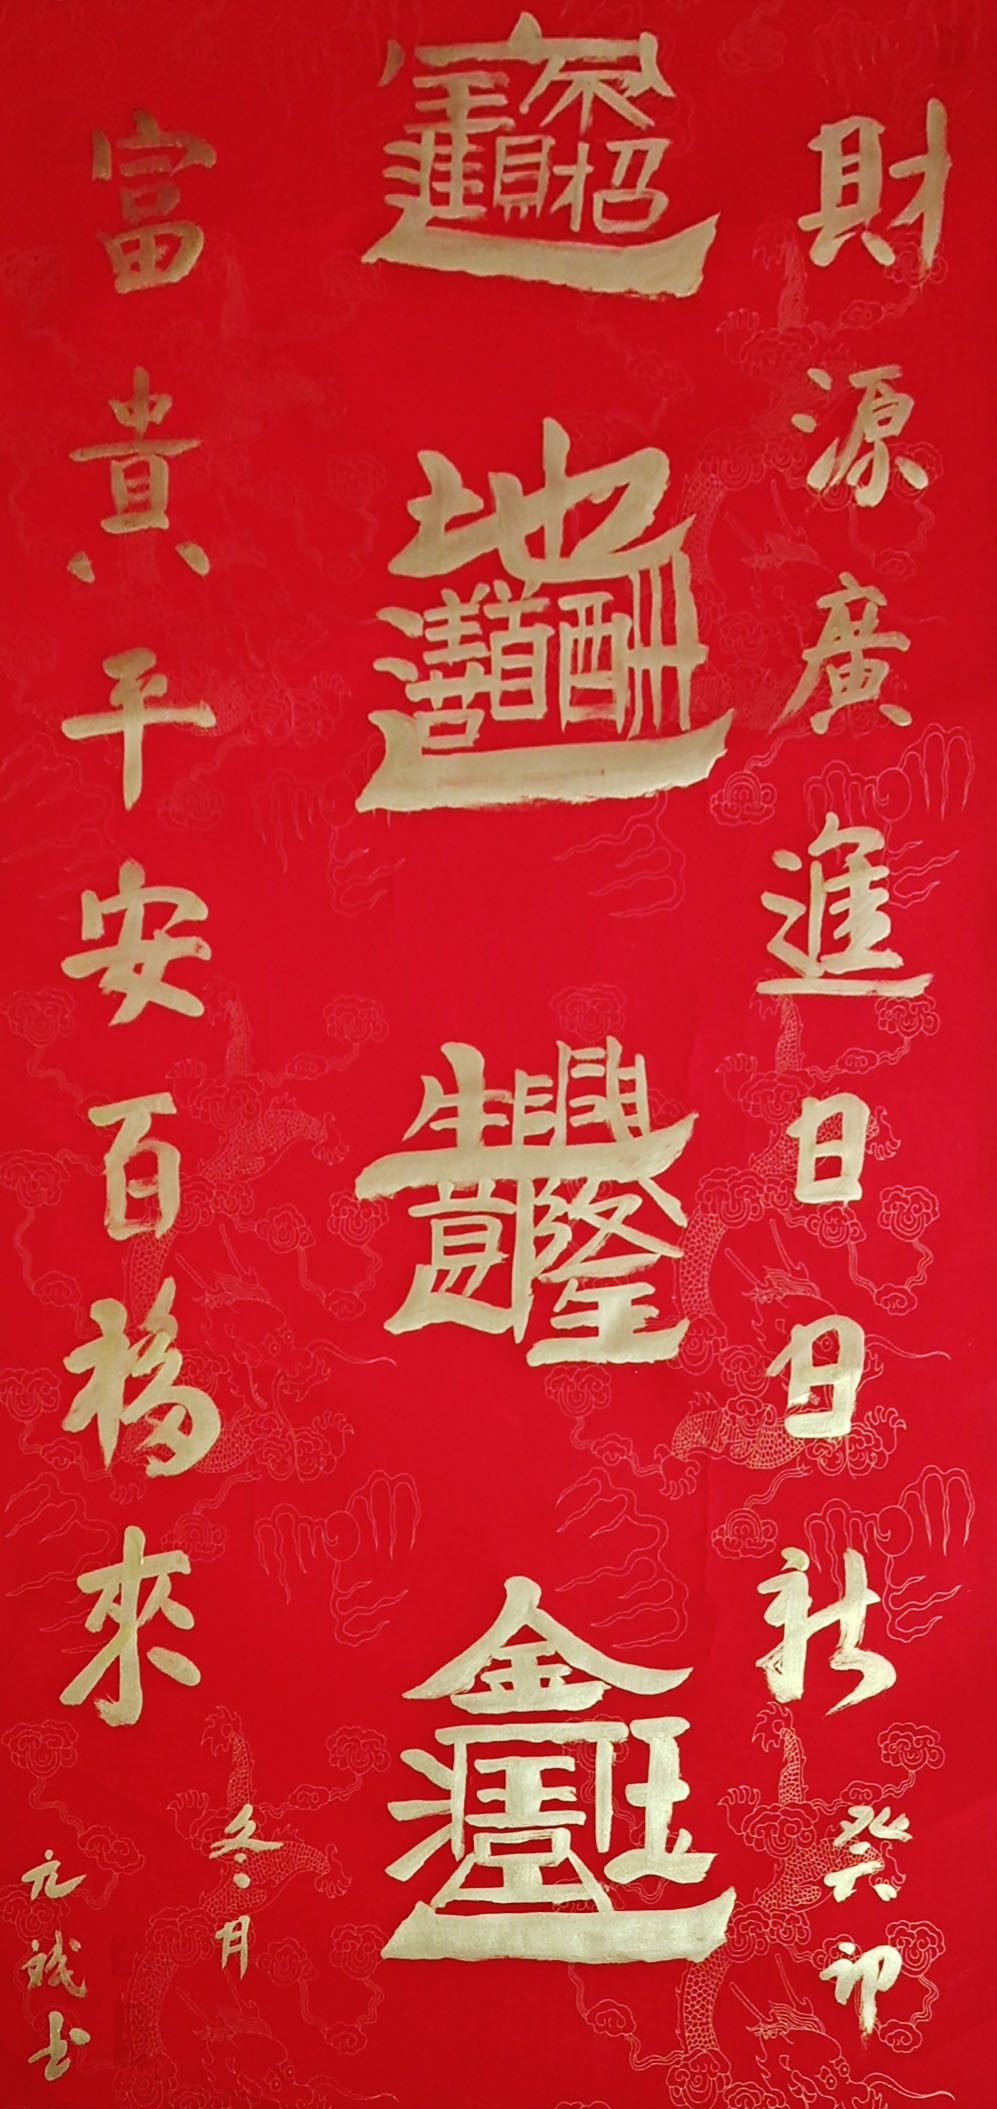 財源廣進日日新
招財進寶
生意興隆
金玉滿堂
富貴平安百福來
癸卯
冬月
元斌书